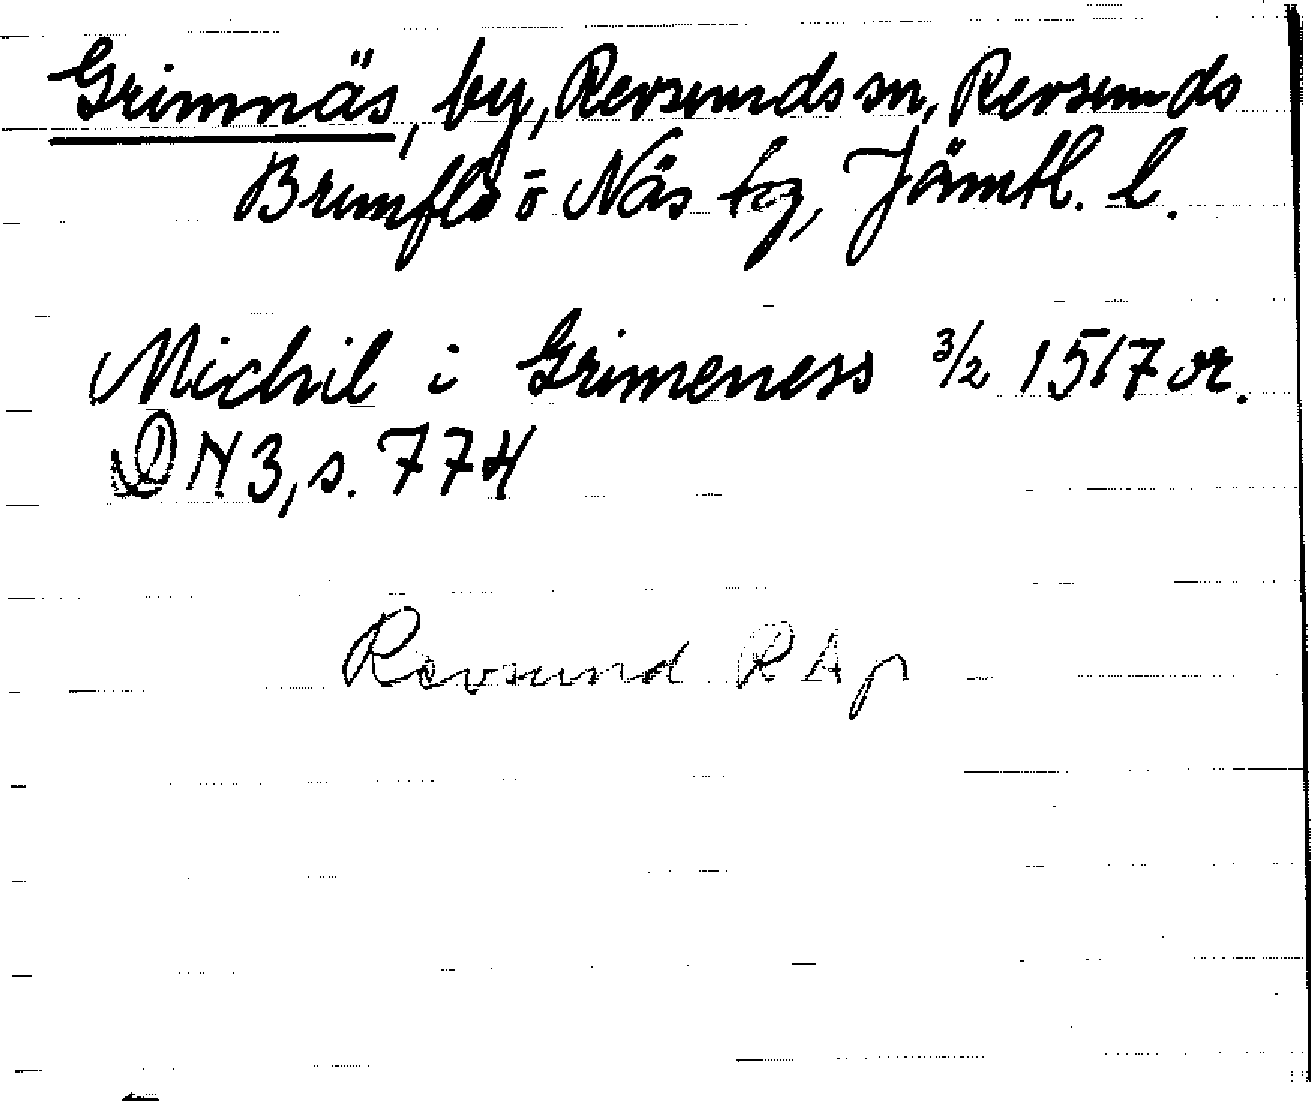 Grimnäs, by, Revsunds sn, Revsunds
Brunflo o Näs tg, Jämtl. l.
Michil i Grimeness 3/2 1517 or.
DN 3, s. 774
Revsund RAp